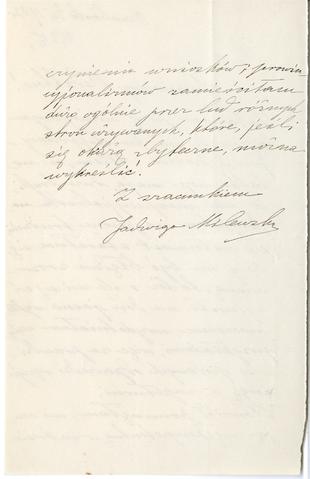 czynienia wniosków; prowin
cyjonalizmów zamieściłam
dużo ogólnie przez lud różnych
stron używanych, które, jeśli
się okażą zbyteczne, można
wykreślić.
Z szacunkiem
Jadwiga Milewska